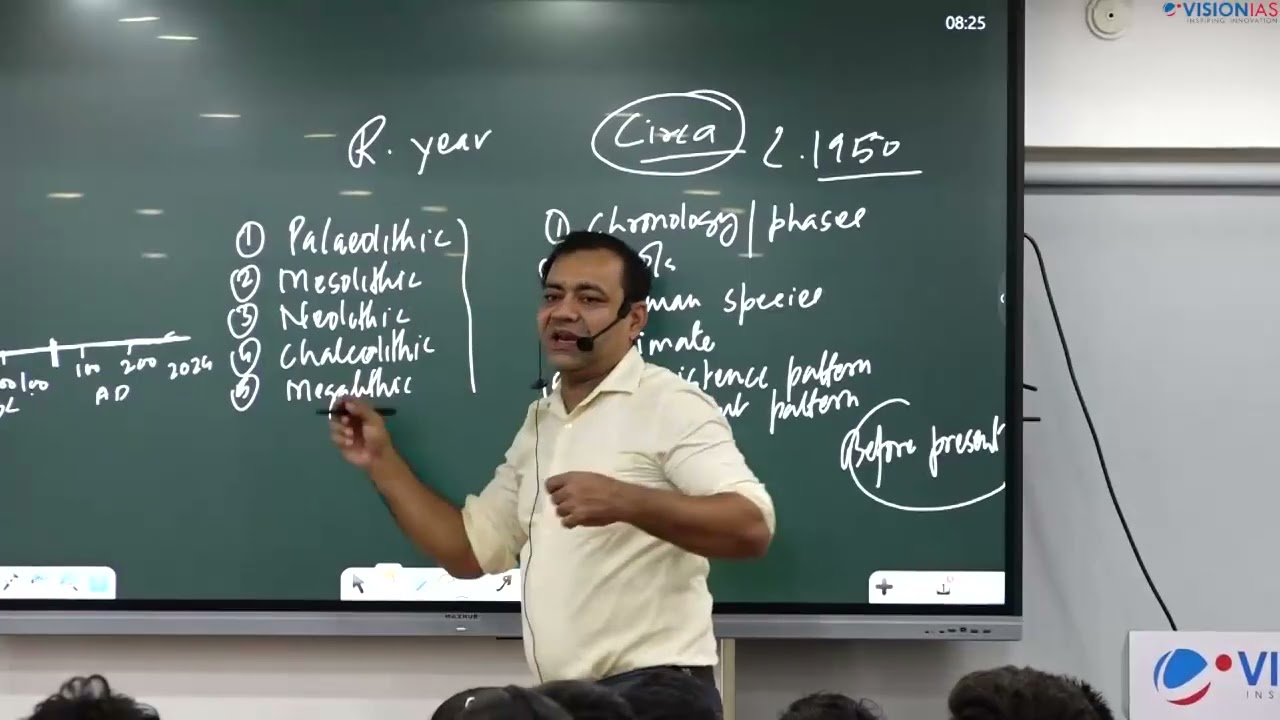 08:25
VISIONIAS
INSPIRING INNOVATION
R. year
Circa
1950
① Palaeolithic
② Mesolithic
③ Neolithic
④ Chalcolithic
⑤ Megalithic
① chronology / phases
species
pattern
pattern
Before present
100 200 2024
AD
MAXHUB
VI
INS